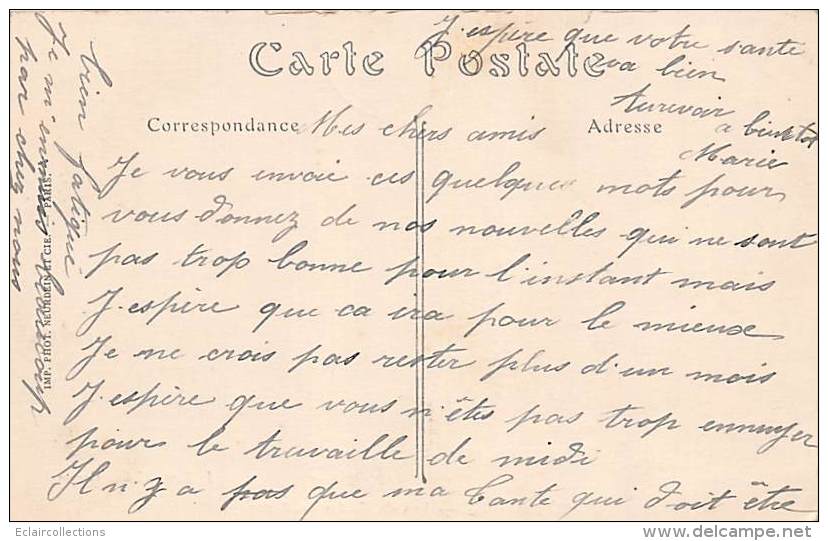 Carte Postale
Correspondance
Adresse
Mes chers amis
Je vous envoie ces quelques mots pour
vous donnez de nos nouvelles qui ne sont
pas trop bonne pour l'instant mais
J'espère que ca ira pour le mieux
Je ne crois pas rester plus d'un mois
J'espère que vous n'êtes pas trop ennuyer
pour le travaille de midi
Il n'y a pas que ma tante qui doit être
bien fatigué
Je m'ennuis beaucoup
par chez nous
J'espère que votre sante
va bien
Aurevoir
a bientot
Marie
IMP. PHOT. NEURDEIN ET CIE. - PARIS
Eclaircollections
www.delcampe.net